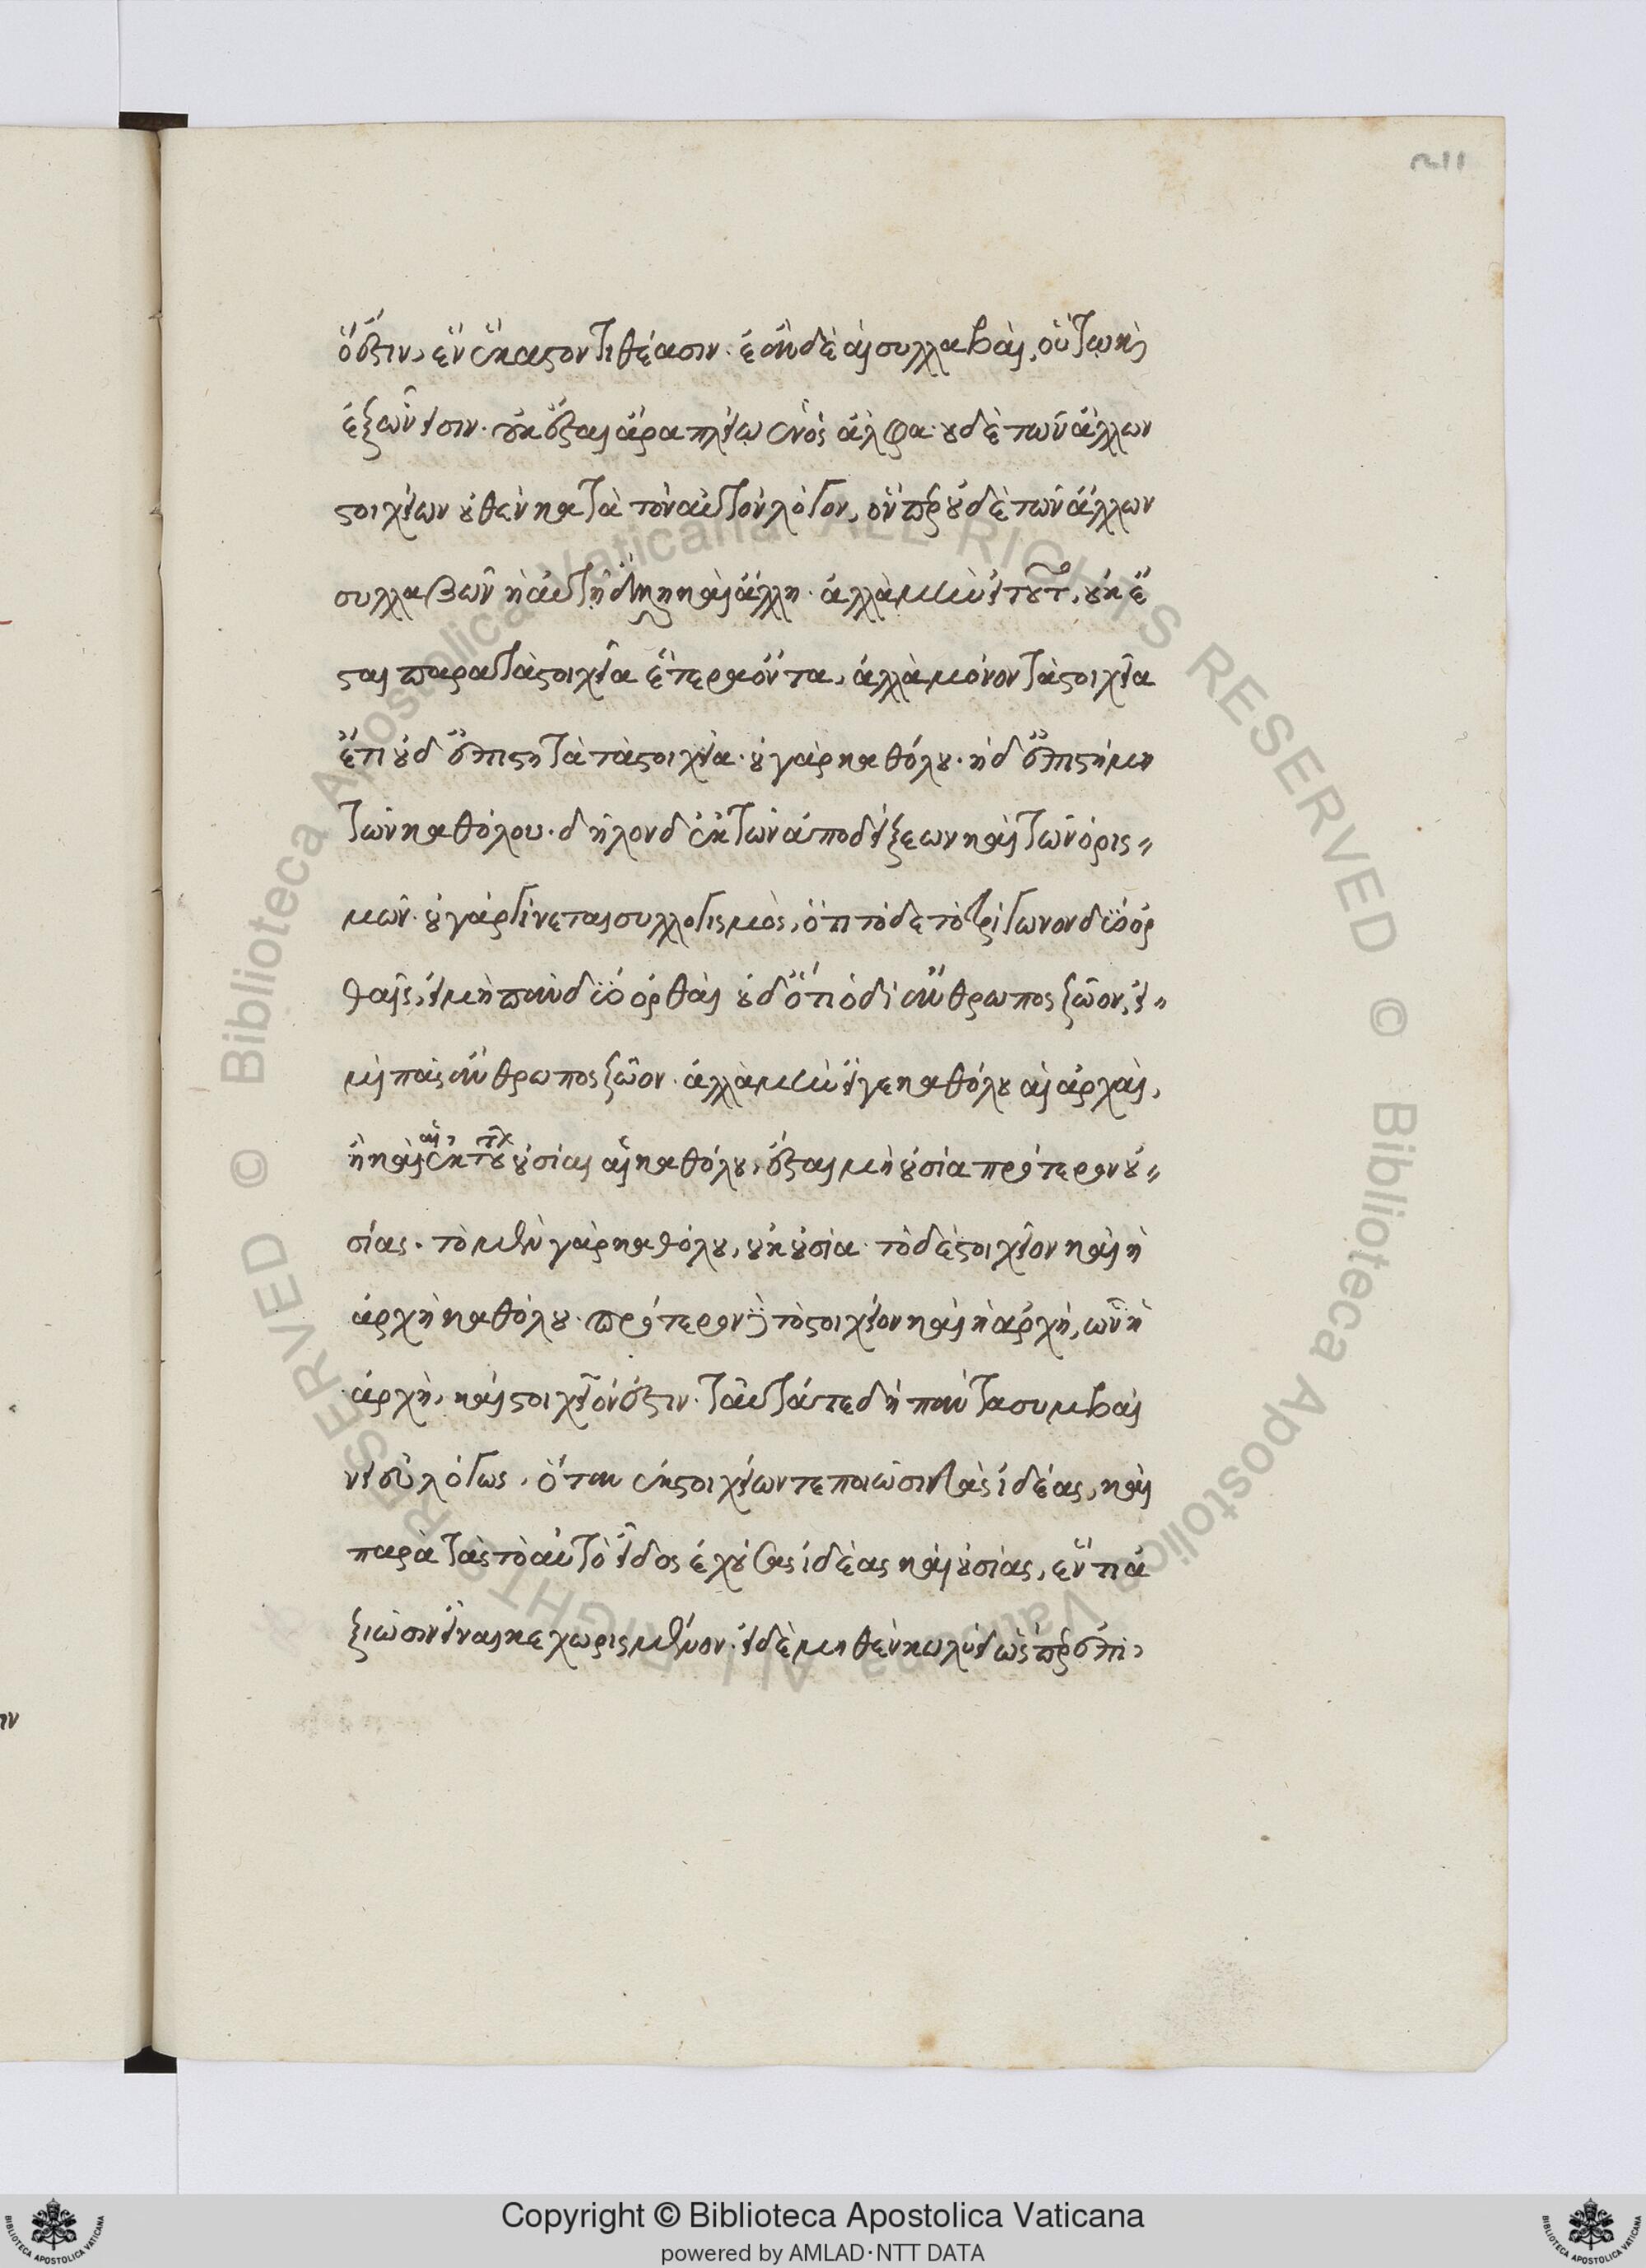 ὃ ἔστιν, ἓν ἕκαστον τιθέασιν. ἐὰν δὲ αἱ συλλαβαὶ, οὕτω καὶ
ἐξ ὧν εἰσιν. οὐκ ἔσται ἄρα πλείω ἑνὸς ἄλφα. οὐδὲ τῶν ἄλλων
στοιχείων οὐθὲν κατὰ τὸν αὐτὸν λόγον, ὅνπερ οὐδὲ τῶν ἄλλων
συλλαβῶν ἡ αὐτὴ ἄλλη καὶ ἄλλη. ἀλλὰ μὴν εἰ τοῦτο, οὐκ ἔ
σται παρὰ τὰ στοιχεῖα ἕτερα ὄντα, ἀλλὰ μόνον τὰ στοιχεῖα
ἔτι οὐδ' ἐπιστητὰ τὰ στοιχεῖα. οὐ γὰρ καθόλου. ἡ δ' ἐπιστήμη
τῶν καθόλου. δῆλον δ' ἐκ τῶν ἀποδείξεων καὶ τῶν ὁρισ
μῶν. οὐ γὰρ γίνεται συλλογισμὸς, ὅτι τόδε τὸ τρίγωνον δύο ὀρ
θαῖς, εἰ μὴ πᾶν δύο ὀρθαὶ οὐδ' ὅτι ὁδὶ ἄνθρωπος ζῶον, εἰ
μὴ πᾶς ἄνθρωπος ζῶον. ἀλλὰ μὴν εἴγε καθόλου αἱ ἀρχαὶ,
ἢ καὶ αἱ ἐκ τούτων οὐσίαι αἱ καθόλου, ἔσται μὴ οὐσία πρότερον οὐ
σίας. τὸ μὲν γὰρ καθόλου, οὐκ οὐσία. τὸ δὲ στοιχεῖον καὶ ἡ
ἀρχὴ καθόλου. πρότερον δὲ τὸ στοιχεῖον καὶ ἡ ἀρχὴ, ὧν ἡ
ἀρχὴ, καὶ στοιχεῖόν ἐστιν. ταῦτά τε δὴ πάντα συμβαί
νει εὐλόγως, ὅταν ἐκ στοιχείων τε ποιῶσι τὰς ἰδέας, καὶ
παρὰ τὰς τὸ αὐτὸ εἶδος ἐχούσας ἰδέας καὶ οὐσίας, ἕν τι ἀ
ξιῶσιν εἶναι κεχωρισμένον. εἰ δὲ μηθὲν κωλύει ὥσπερ ἐπὶ